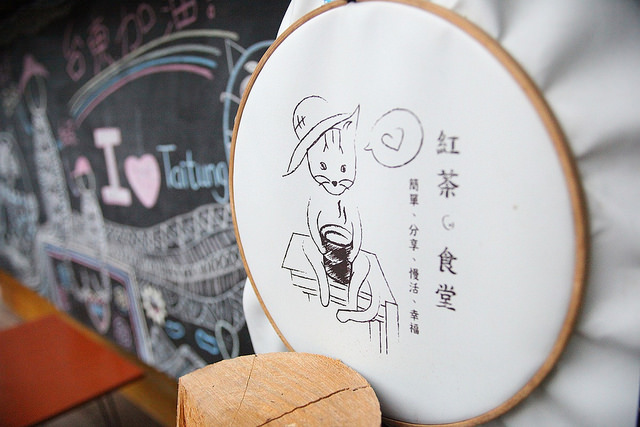 台東加油!
I
Taitung
紅茶 食堂
簡單、分享、慢活、幸福